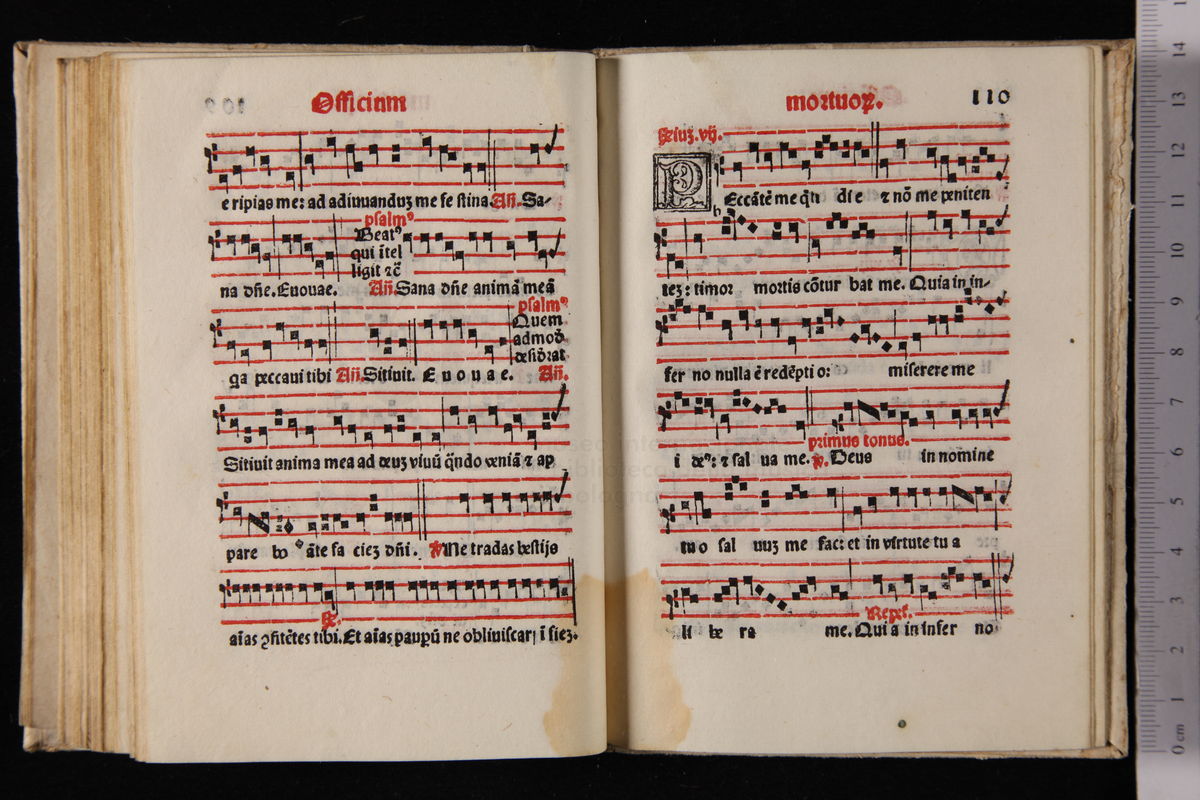 Officium
e ripias me: ad adiuuanduʒ me fe stina Añ. Sa-
psalmꝰ
Beatꝰ
qui ītel
ligit ⁊c̄
na dñe. Euouae. Añ. Sana dñe animā meā
psalmꝰ
Quem
admoď
ga peccaui tibi Añ. Sitiuit. E u o u a e. Añ.
Sitiuit anima mea ad deuʒ viuū q̄ndo veniā ⁊ ap
pare bo āte fa cieʒ dñi. ℣. Ne tradas bestijs
℟.
aīas ꝯfitētes tibi. Et aīas paupū ne obliuiscarꝭ ī fieʒ.
mortuoꝝ. 110
vij.
P
Eccātē me q̄ti di e ⁊ nō me peniten
teʒ: timor mortis cōtur bat me. Quia in in-
fer no nulla ē redēpti o: miserere me
primus tonus.
i deꝰ: ⁊ sal ua me. ℣. Deus in nomine
tuo sal uuʒ me fac: et in virtute tu a
Repet.
li be ra me. Qui a in infer no
0 cm 1 2 3 4 5 6 7 8 9 10 11 12 13 14